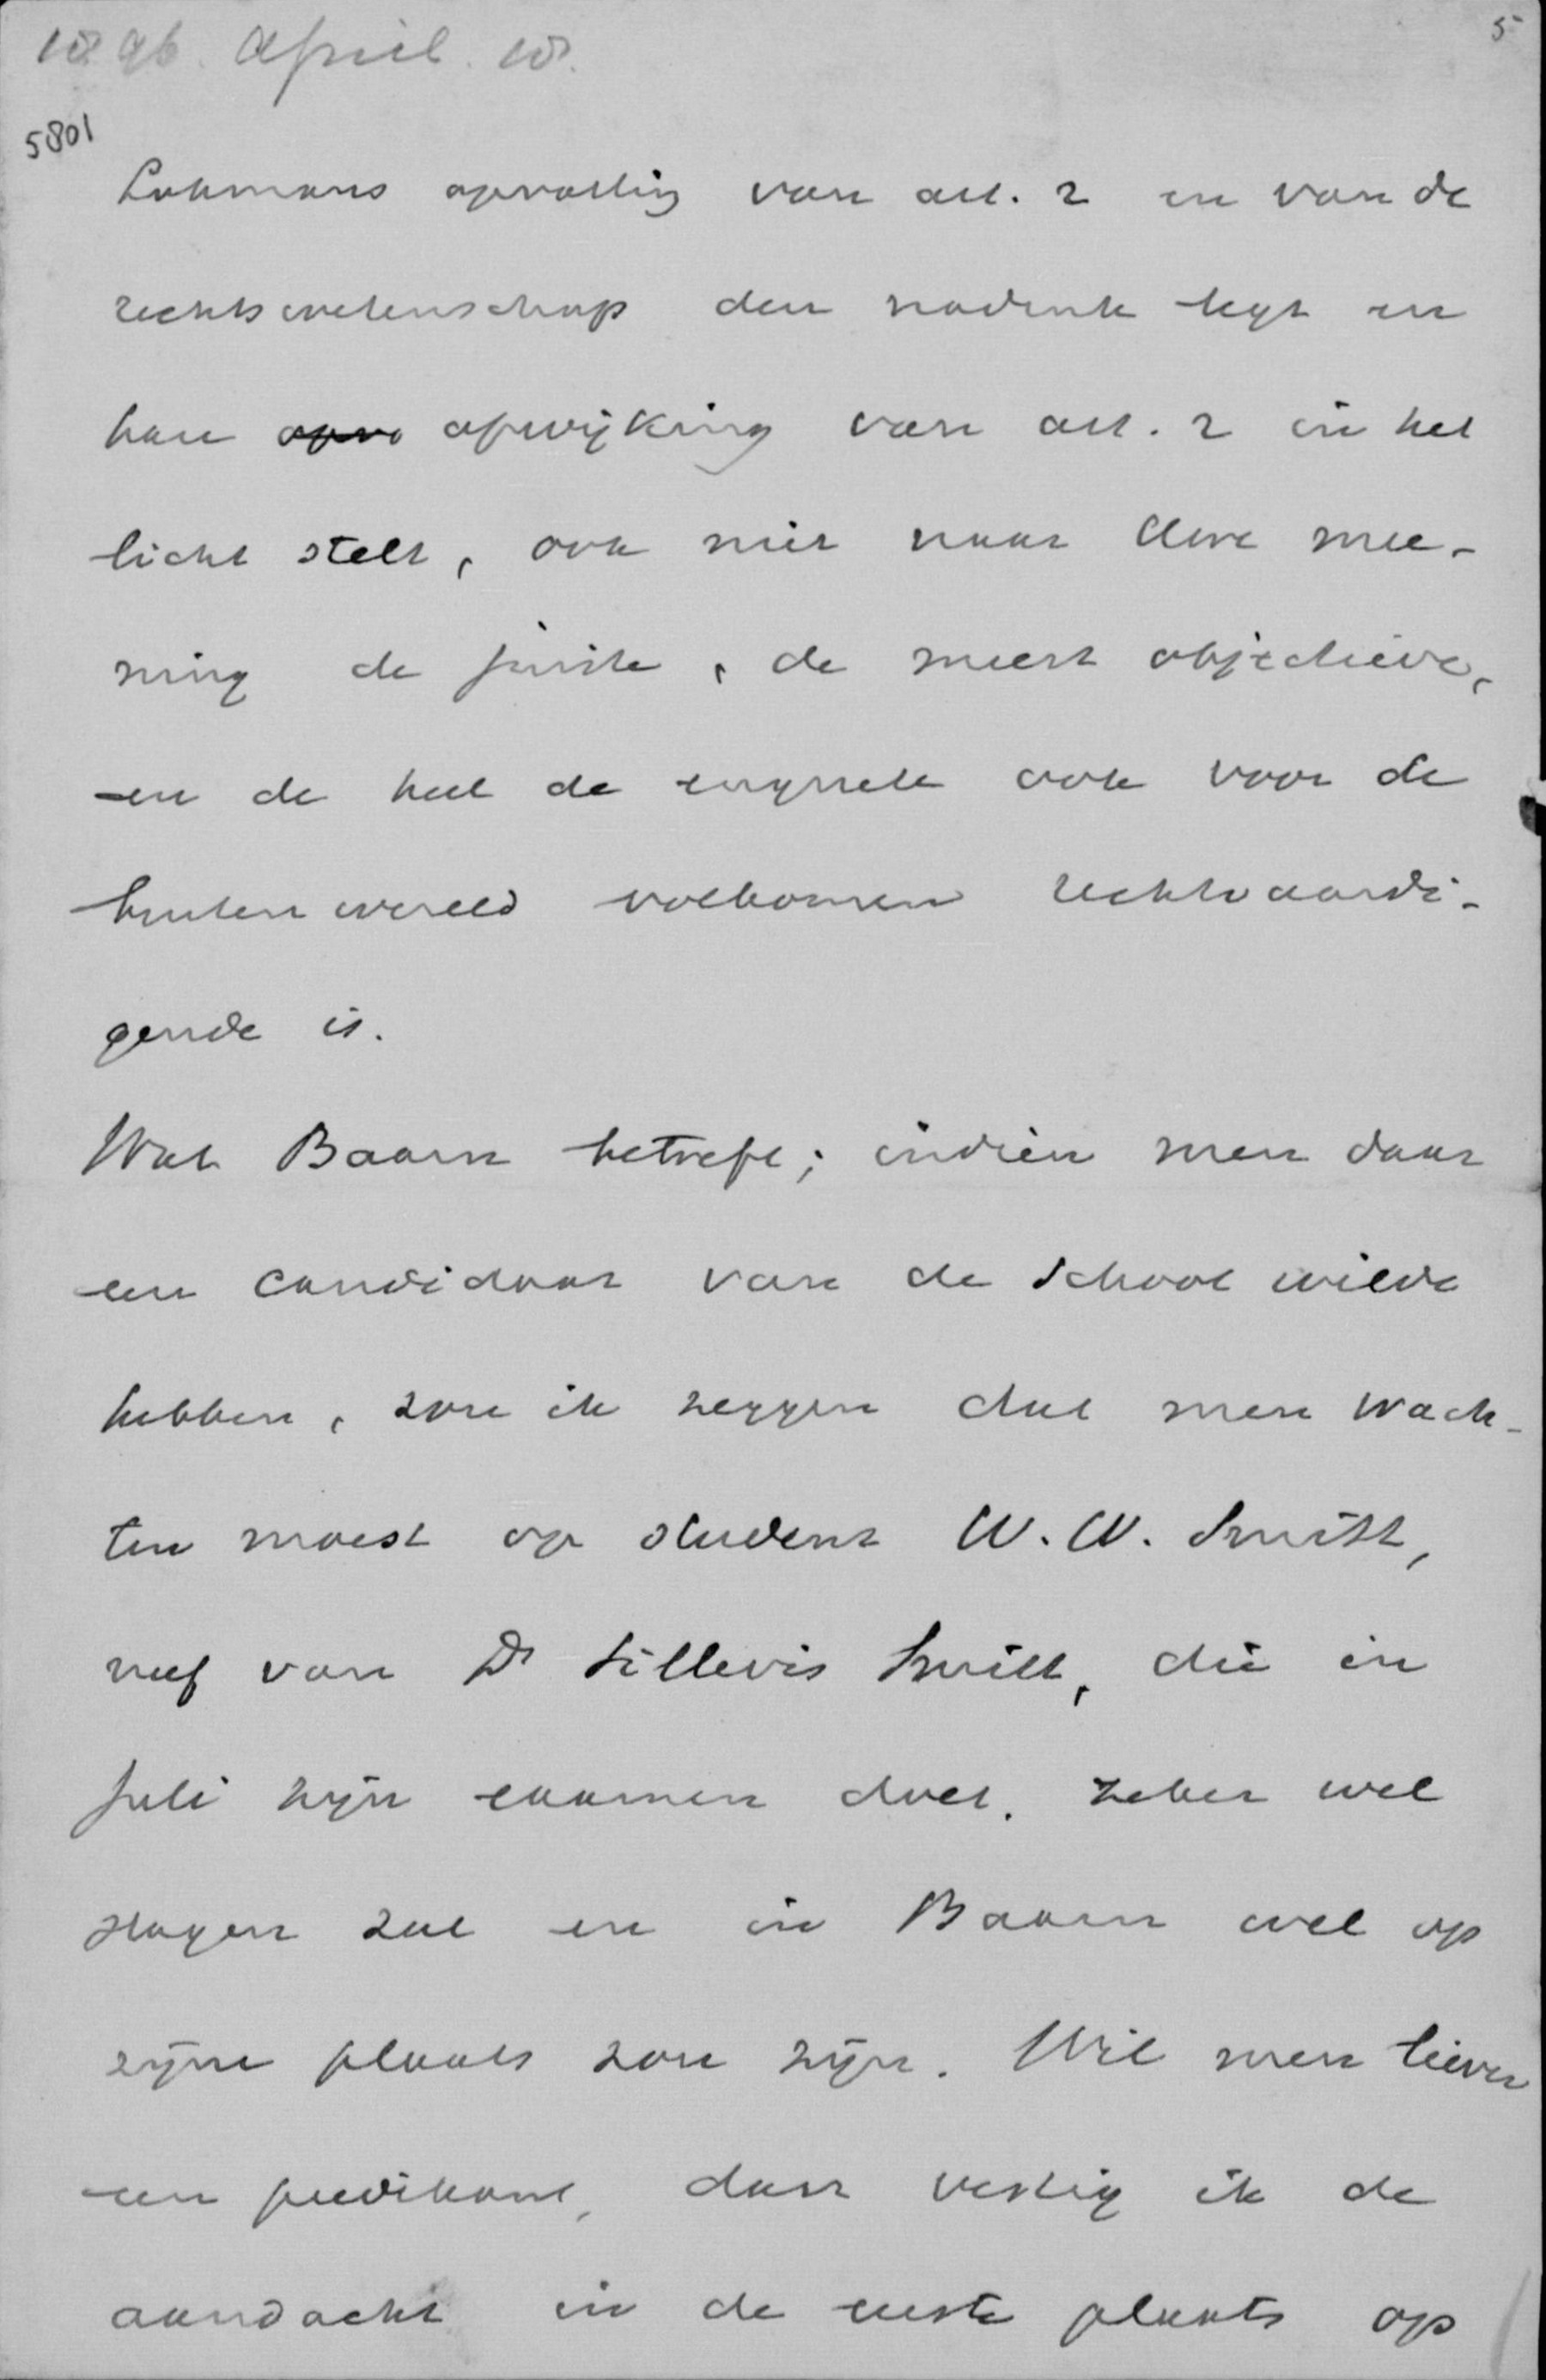 1896. April. 10.
5
5801
Lohmans opvatting van art. 2 en van de
rechtswetenschap den nadruk legt en
hare opvo afwijking van art. 2 in het
licht stelt, ook niet naar Uwe mee-
ning de juiste, de meest objectieve,
en de heel de enquete ook voor de
buitenwereld volkomen rechtvaardi-
gende is.
Wat Baarn betreft; indien men daar
een candidaat van de School wilde
hebben, zou ik zeggen dat men wach-
ten moest op student W. W. Smitt,
neef van Ds Sillevis Smitt, die in
Juli zijn examen doet. zeker wel
slagen zal en in Baarn wel op
zijne plaats zou zijn. Wil men liever
een predikant, dan vestig ik de
aandacht in de eerste plaats op